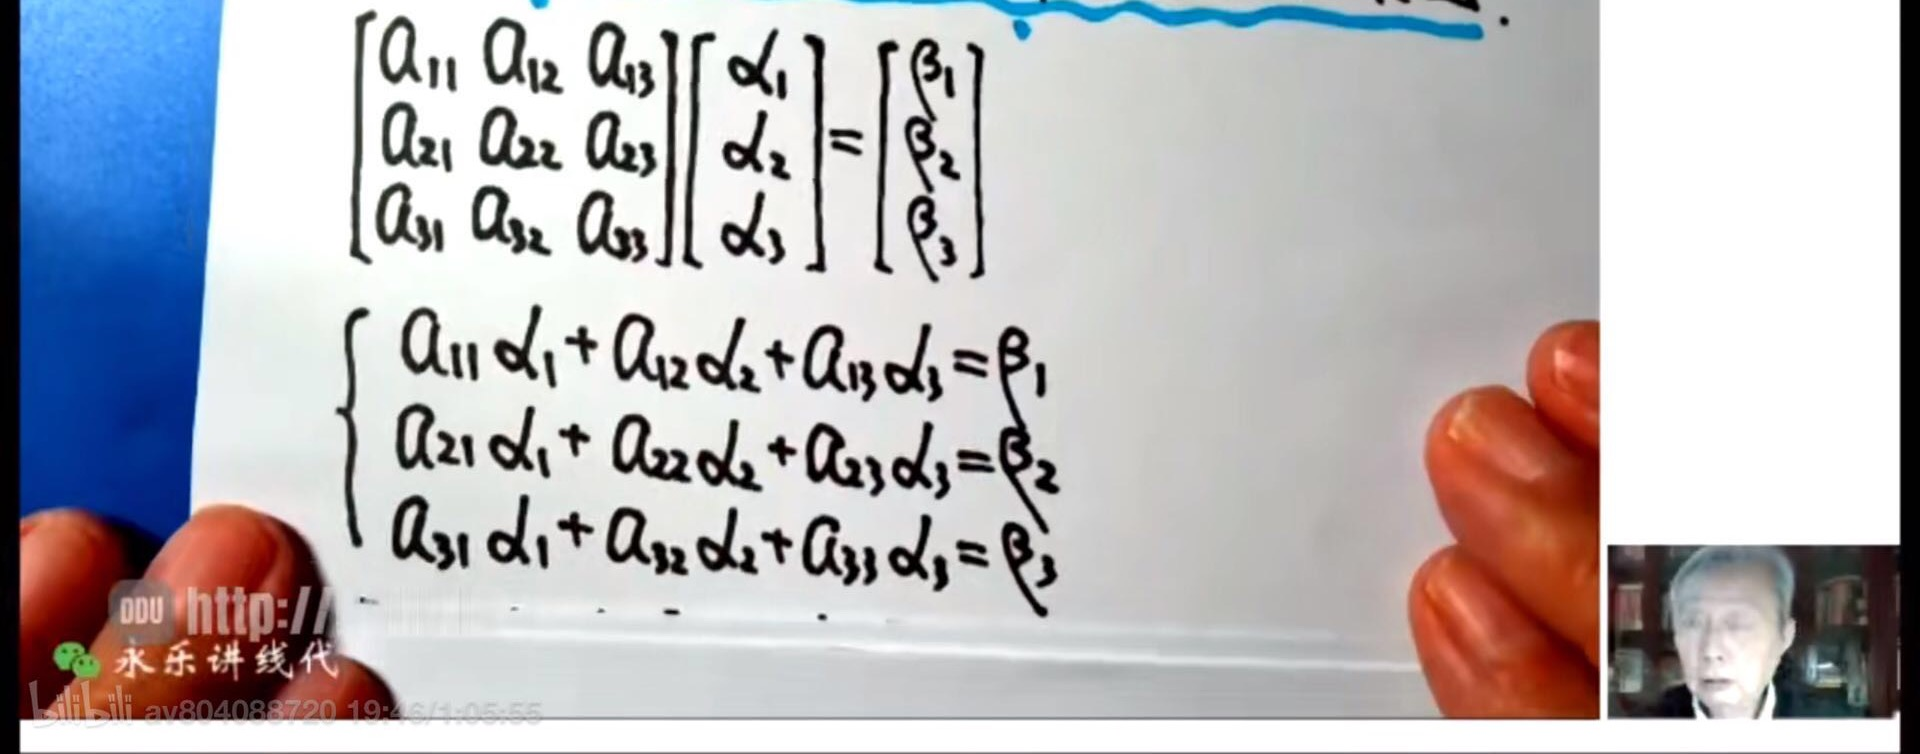 [a₁₁ a₁₂ a₁₃] [α₁] = [β₁]
[a₂₁ a₂₂ a₂₃] [α₂] = [β₂]
[a₃₁ a₃₂ a₃₃] [α₃] = [β₃]
{ a₁₁α₁+a₁₂α₂+a₁₃α₃=β₁
a₂₁α₁+a₂₂α₂+a₂₃α₃=β₂
a₃₁α₁+a₃₂α₂+a₃₃α₃=β₃
DDU http://
永乐讲线代
bilibili av804088720 19:46/1:05:55